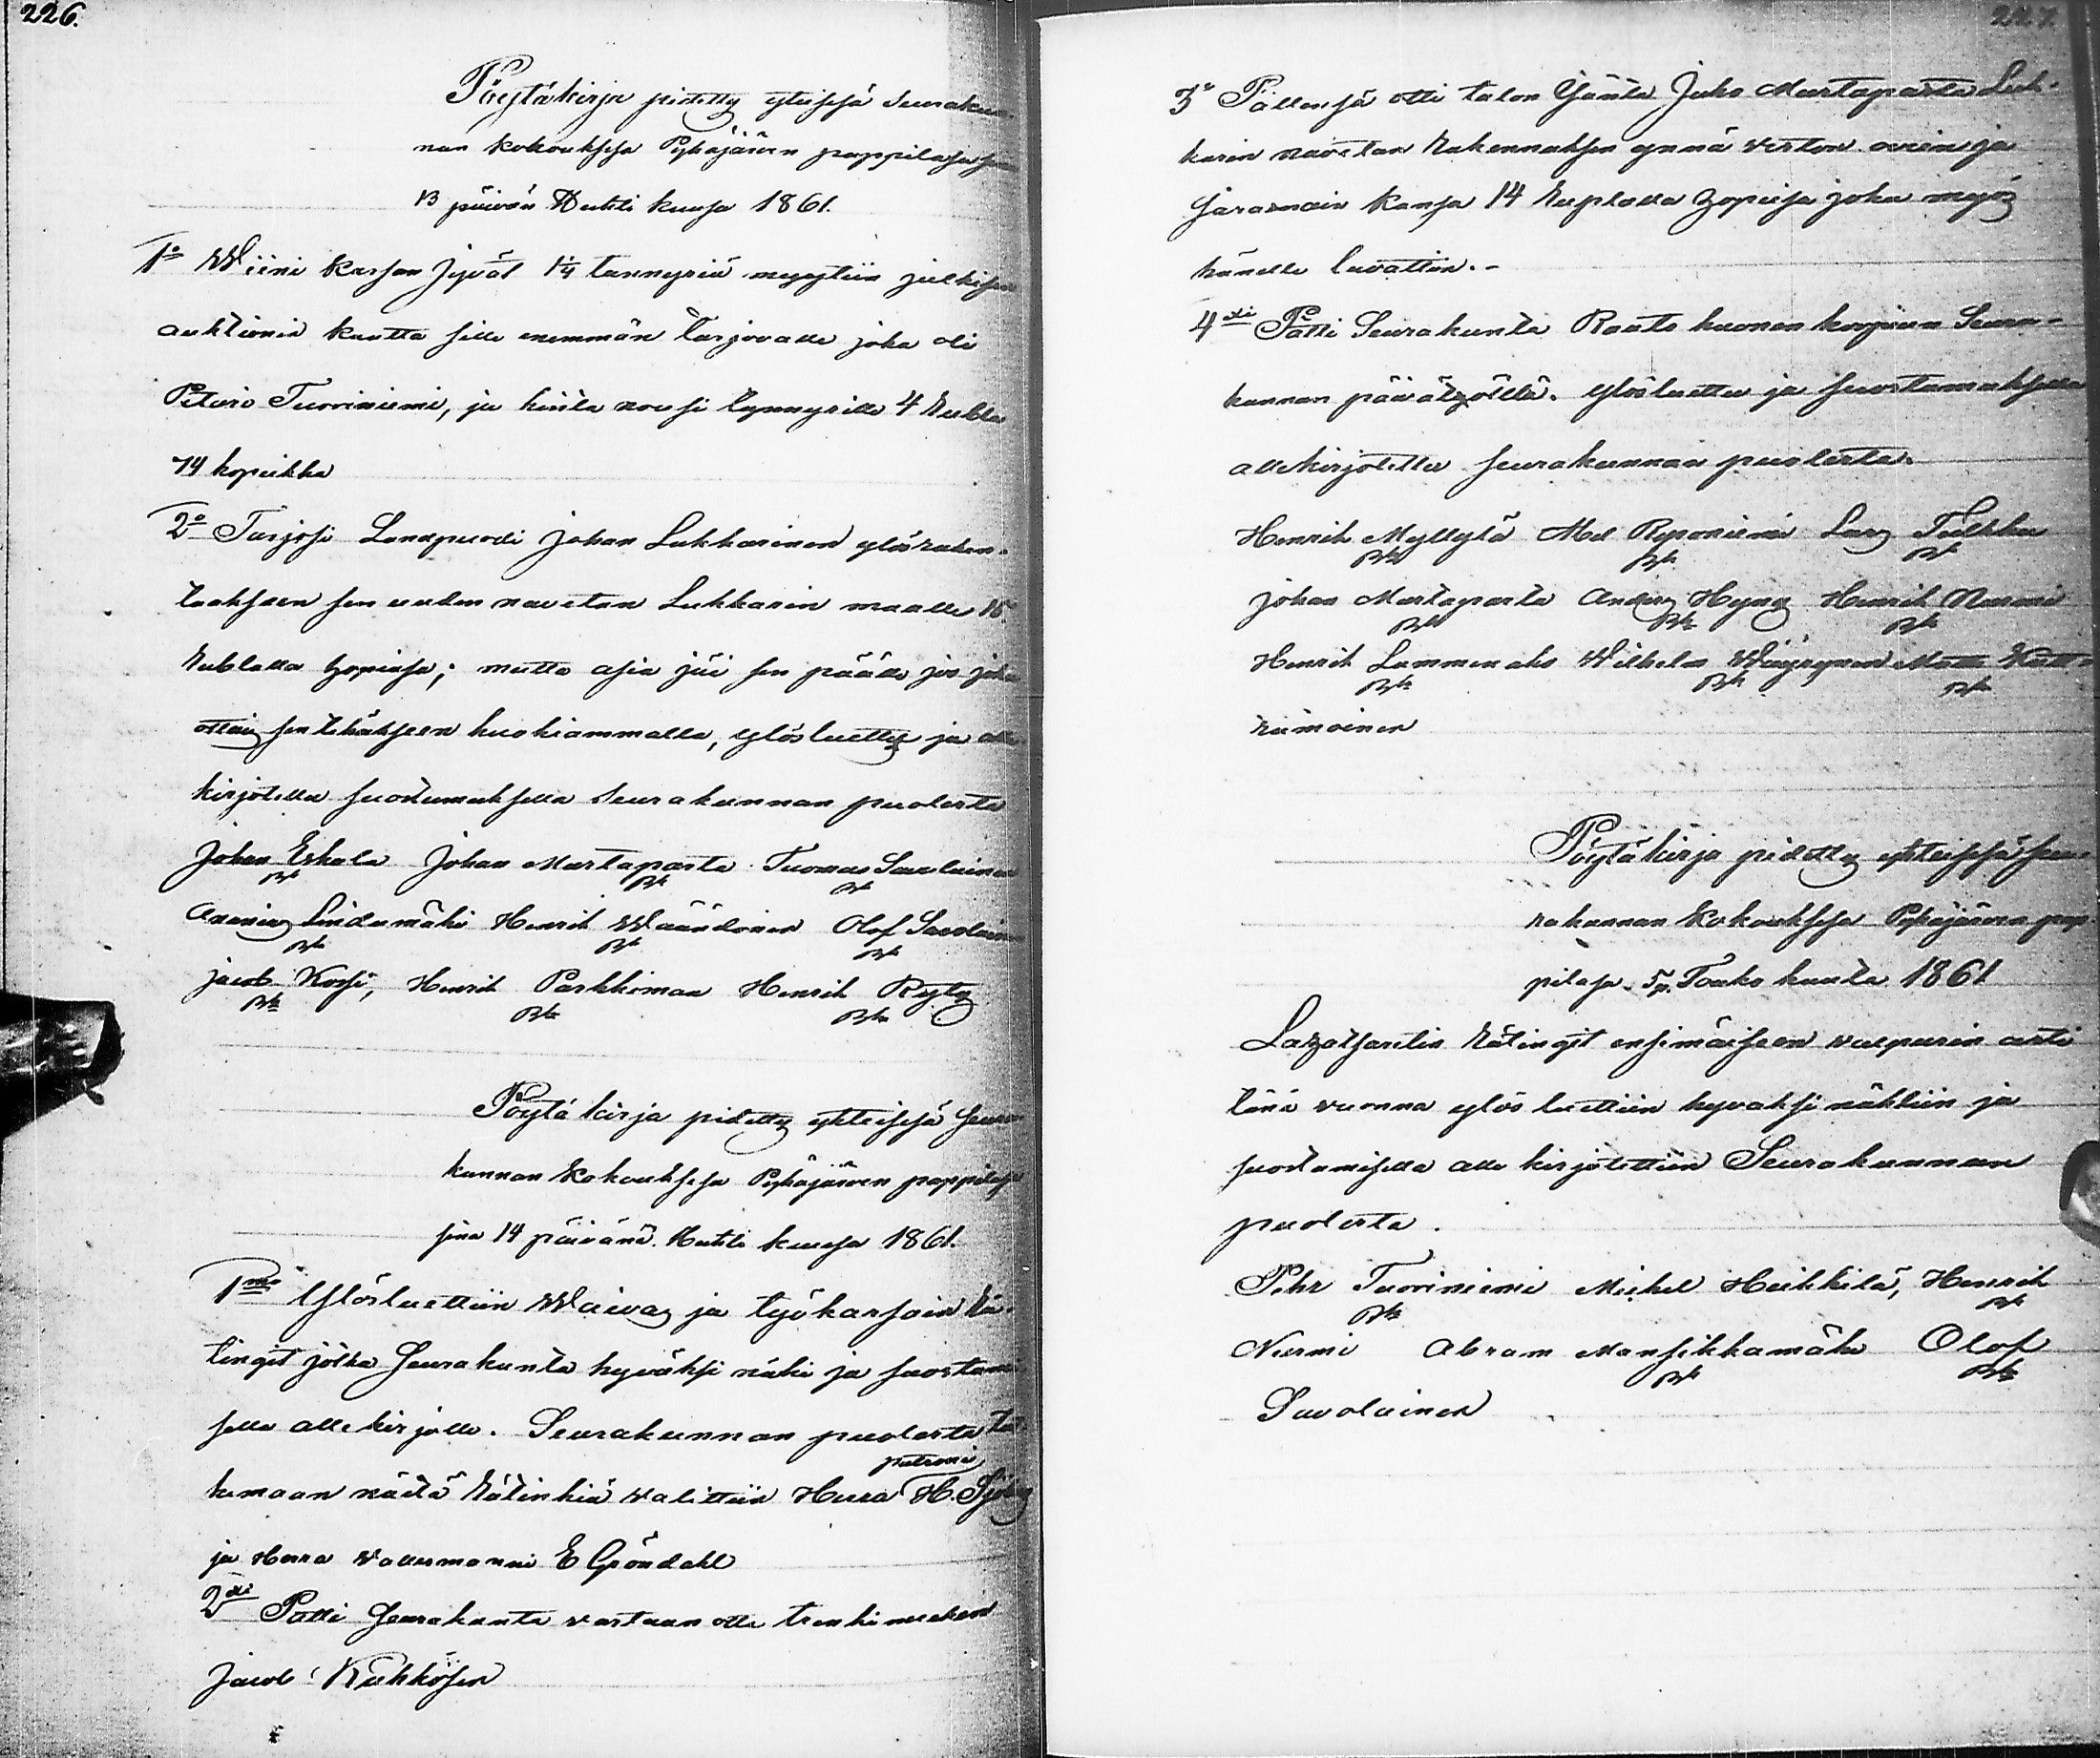 226.
Pöytäkirja pidetty yteisesä seurakun
nan kokouksesa Pyhäjärven pappilasa
13 päivän Huhti kuusa 1861.
1o Wiini kassan jyvät 1/4 tunnyriä myytiin julkisen
auktionin kautta sille enemmän tarjovalle joka oli
Petari Tuoviniemi, ja hinta nousi tynnyrille 4 Rubla
74 kopeikka
2o Tarjosi Landpuodi Johan Lukkarinen ylösraken-
taaksen sen uuden navetan Lukkarin maalle 15
Rublalla hopiasa; mutta asia jäi sen päälle jos joku
ottais sen tehäkseen huokiammalla, ylösluettu ja alle
kirjotettu suostumuksella seurakunnan puolesta
Johan Eskola Johan Mustaparta Tuomas Savolainen
Ananias Lindumäki Henrik Wäänänen Olof Savolainen
jacob Kossi, Henrik Parkkinan Henrik Rytty
Pöytäkirja pidetty yhteisesä seura
kunnan kokouksesa Pyhäjärven pappilasa
sinä 14 päivänä Huhti kuusa 1861.
1mo Ylösluettiin Waivas ja työkassain Rä-
tingit jotka Seurakunta hyväksi näki ja suostumi
sella alle kirjotti. Seurakunnan puolesta tut
patroni
kimaan näitä Rätinkiä valittiin Herra H. Sjöberg
ja Herra Vallesmanni E Gröndahl
2di Pätti Seurakunta vastaan otta trenki miehen
Jacob Kähkösen
227.
3o Pällensä otti talon Isäntä Juho Mustaparta Luk-
karin navetan Rakennuksen ynnä veston ovein ja
saranoin kansa 14 Ruplalla hopiasa joka myös
hänelle luvattiin.-
4di Pätti Seurakunta Ruuto huonen korjuun Seura-
kunnan päivätyöllä. Ylösluettu ja suostumuksella
allekirjotettu seurakunnan puolesta.
Henrik Myllylä Abel Ryponiemi Lars Tulkku
johan Mustaparta Anders Hyny Henrik Nurmi
Henrik Lammenaho Wilhelm Wäyrynen Matts Katt-
rumainen
Pöytäkirja pidetty yhteisesä seu
rakunnan kokouksesa Pyhäjärven pap
pilasa 5 p. Touko kuuta 1861
Lazatsaretin Rätingit ensimäiseen valpurin asti
tänä vuonna ylös luettiin hyväksi nähtiin ja
suostumisella alle kirjotettiin Seurakunnan
puolesta.
Pehr Tuoviniemi Michel Heikkilä, Henrik
Niemi Abram Mansikkamäki Olof
Savolainen